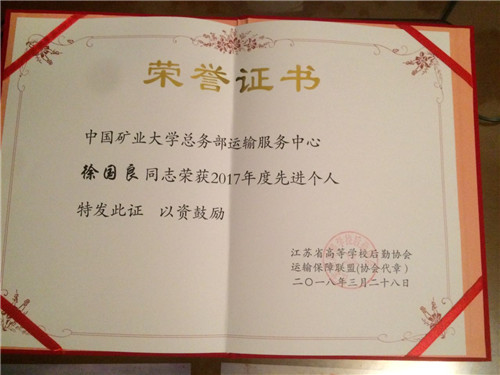 荣誉证书
中国矿业大学总务部运输服务中心
徐国良同志荣获2017年度先进个人
特发此证 以资鼓励
江苏省高等学校后勤协会
运输保障联盟(协会代章)
二〇一八年三月二十八日